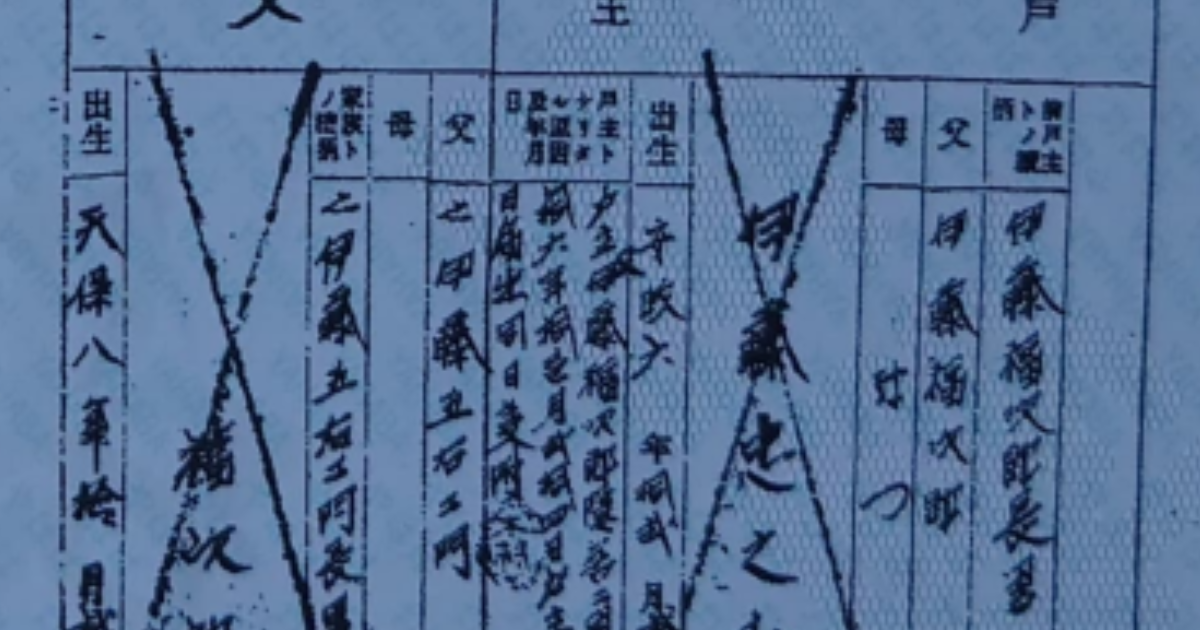 戸
主
父
前戸主
トノ續
柄
伊藤福次郎長男
父
伊藤福次郎
母
はつ
伊藤忠之
出生
安政六年拾弐月
戸主ト
ナリタ
ル原因
及年月
日
戸主伊藤福次郎隠居
拾六年拾壱月弐拾四日戸主
日届出同日受附
父
亡伊藤五右エ門
母
家族ト
ノ續柄
亡伊藤五右エ門長男
福次郎
出生
天保八年拾月